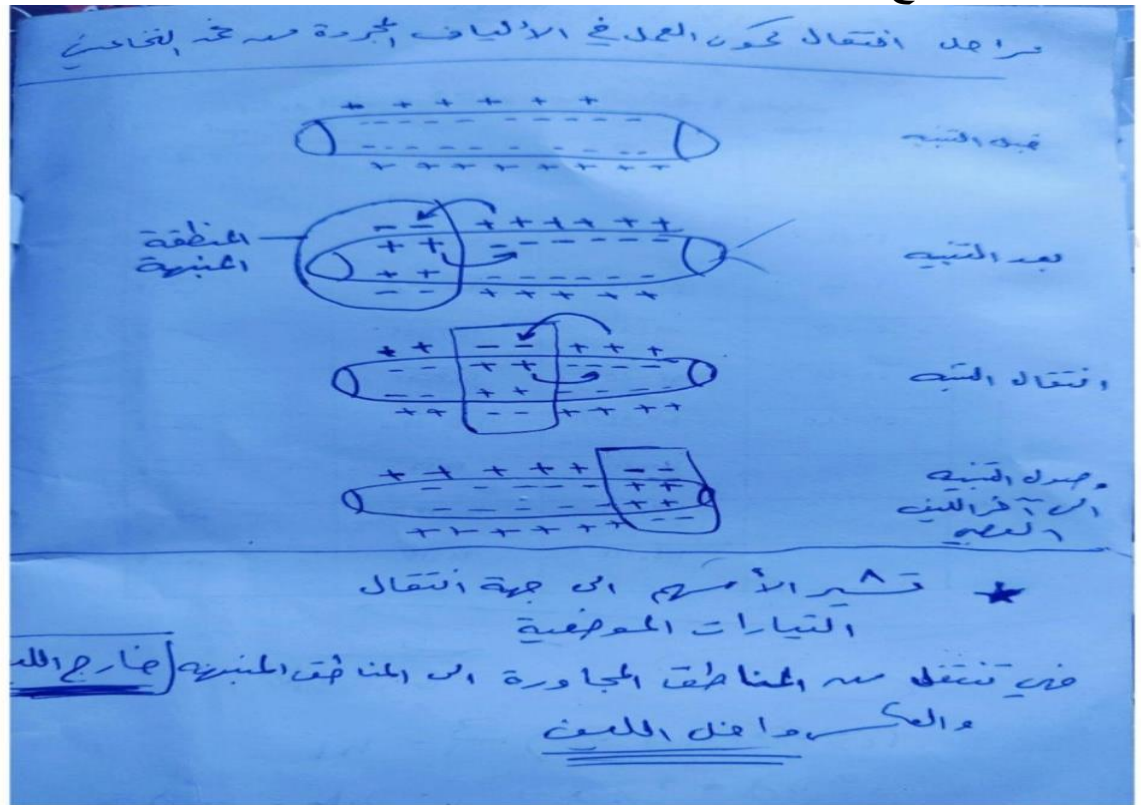 مراحل انتقال كمون العمل في الألياف المجردة من غمد النخاعين
+ + + + + +
- - - - - - - - -
- - - - - - - -
+ + + + + + + +
قبل التنبيه
- - + + + + + +
+ + - - - - - -
+ + - - - - - -
- - + + + + +
المنطقة
المنبهة
بعد التنبيه
+ + - - + + +
- - + + - - - -
- - + + - - - -
+ + - - + + + +
انتقال التنبيه
+ + + + + - -
- - - - - + +
- - - - - - + +
+ + + + + + + - -
وصول التنبيه
الى آخر الليف
العصبي
★ تشير الأسهم الى جهة انتقال
التيارات الموضعية
فهي تنتقل من المناطق المجاورة الى المناطق المنبهه (خارج
والعكس داخل الليف